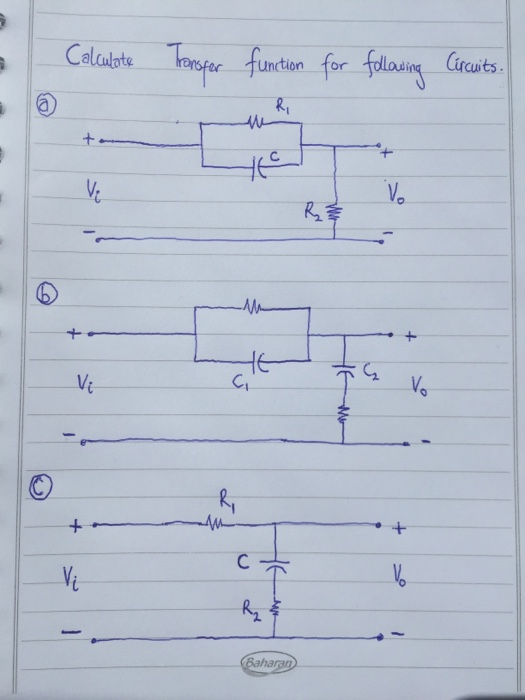 Calculate Transfer function for following Circuits.
a
R1
C
+ +
Vi Vo
R2
- -
b
+ +
C1 C2
Vi Vo
- -
C
R1
+ +
C
Vi Vo
R2
- -
Baharan